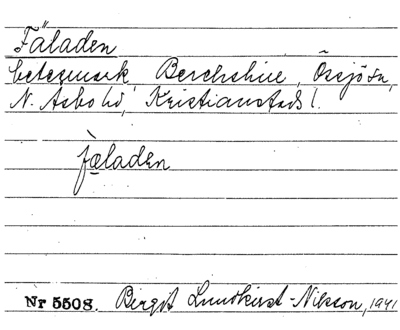 Fäladen
betesmark, Össjö sn,
N. Åsbo hd, Kristianstads l.
fæladen
Nr 5508. Birgit Lundkvist-Nilsson, 1941